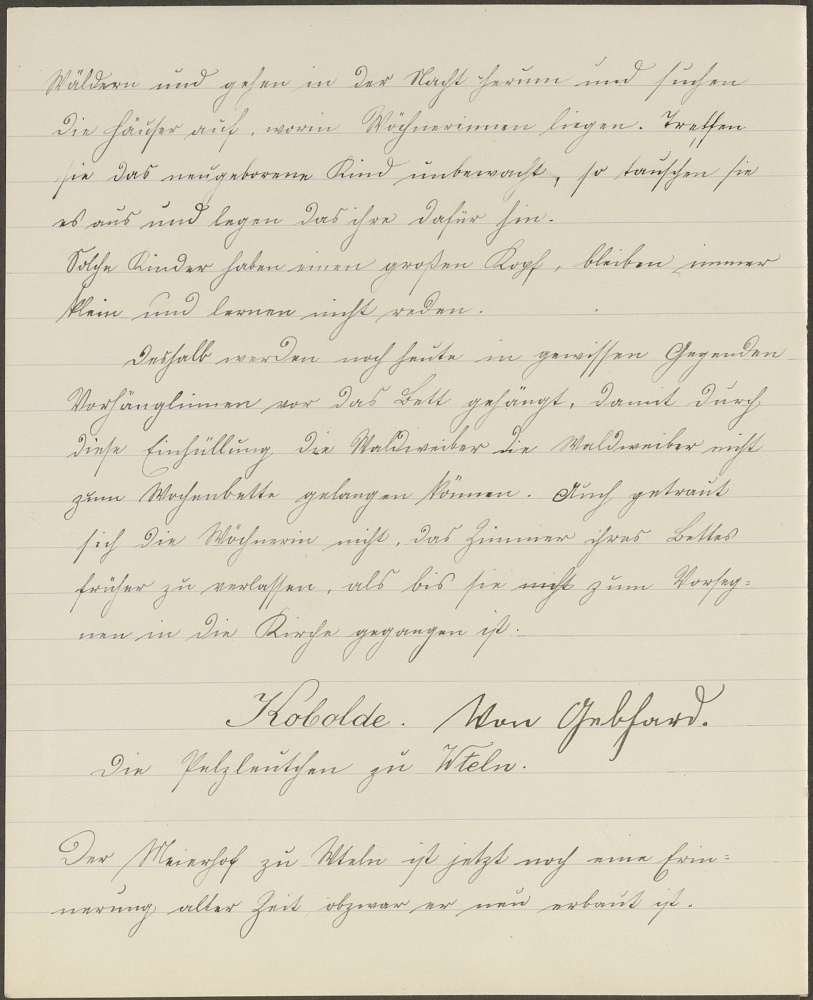 Wäldern und gehen in der Nacht herum und suchen
die Häuser auf, worin Wöchnerinnen liegen. Treffen
sie das neugeborene Kind unbewacht, so tauschen sie
es aus und legen das ihre dafür hin.
Solche Kinder haben einen großen Kopf, bleiben immer
klein und lernen nicht reden.
Deshalb werden noch heute in gewissen Gegenden
Vorhänglinnen vor das Bett gehängt, damit durch
diese Einhüllung die Waldweiber die Waldweiber nicht
zum Wochenbette gelangen können. Auch getraut
sich die Wöchnerin nicht, das Zimmer ihres Bettes
früher zu verlassen, als bis sie nicht zum Vorseg-
nen in die Kirche gegangen ist.
Kobolde. Von Gebhard.
Die Pelzleutchen zu Wteln.
Der Meierhof zu Wteln ist jetzt noch eine Erin-
nerung alter Zeit, obzwar er neu erbaut ist.